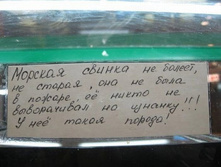 Морская свинка не болеет,
не старая, она не была
в пожаре, её никто не
выворачивал на изнанку!!!
У неё такая порода!